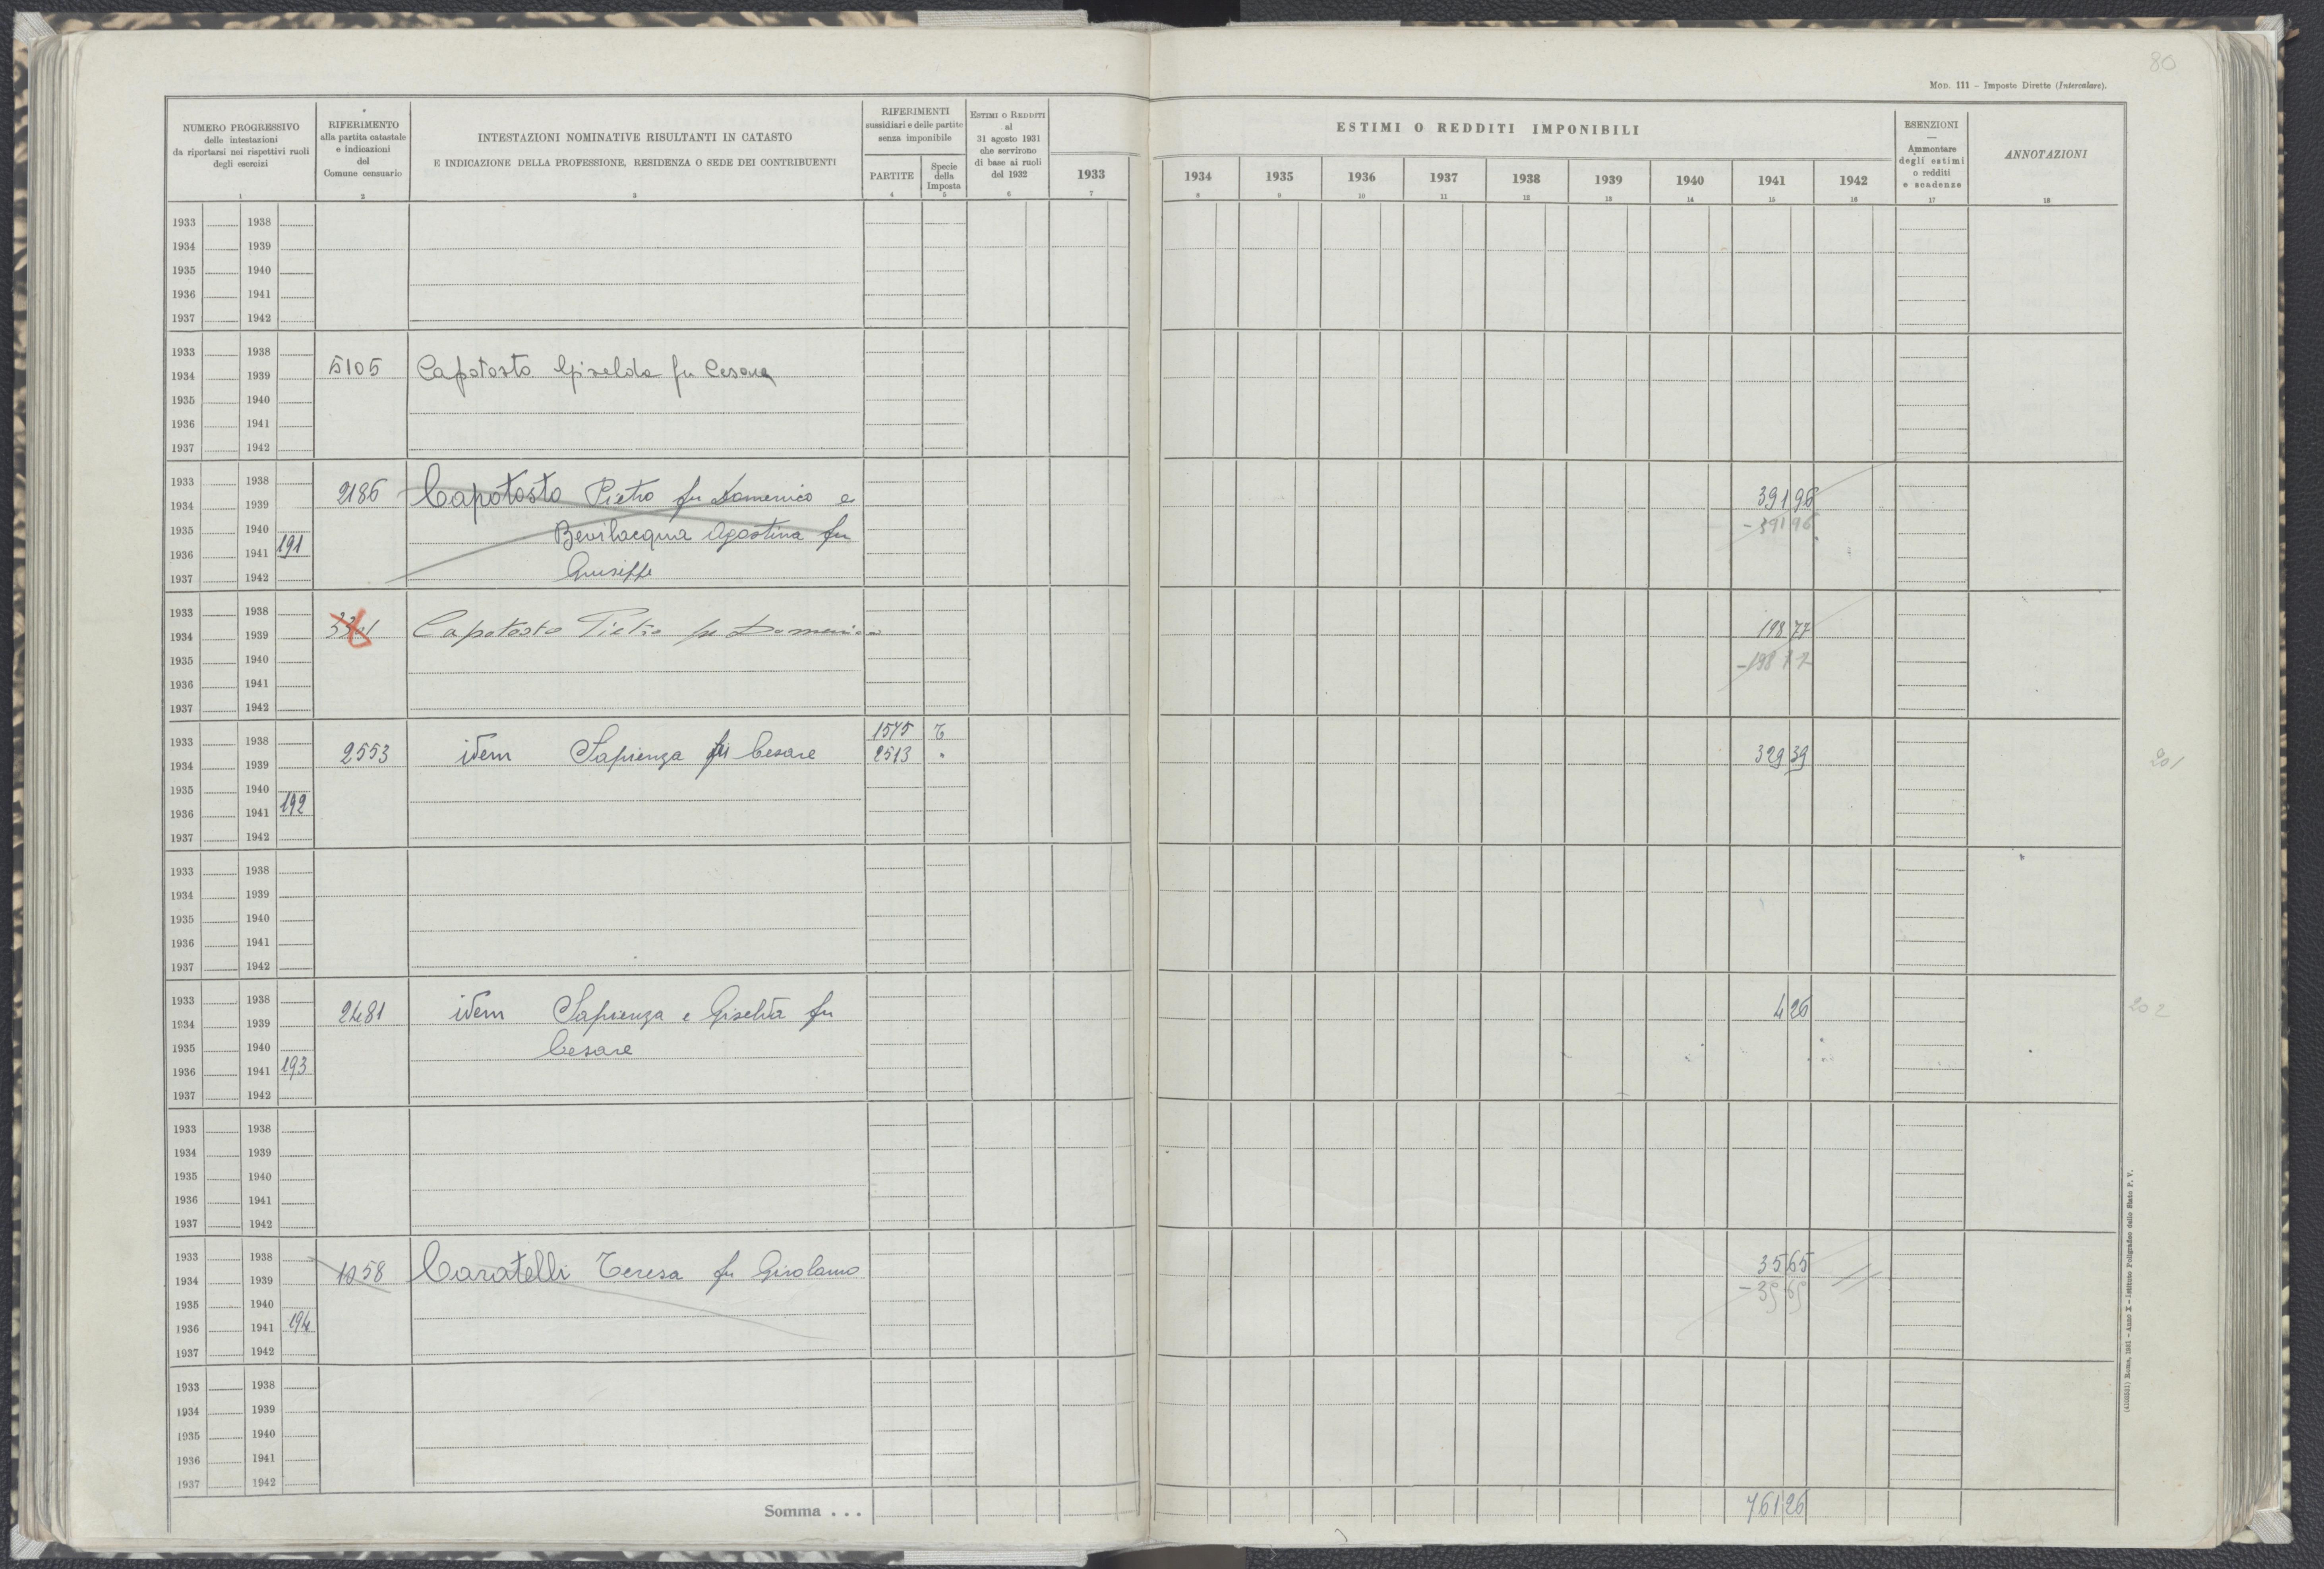 80
Mod. 111 - Imposte Dirette (Intercalare).
NUMERO PROGRESSIVO
delle intestazioni
da riportarsi nei rispettivi ruoli
degli esercizi
1
RIFERIMENTO
alla partita catastale
e indicazioni
del
Comune censuario
2
INTESTAZIONI NOMINATIVE RISULTANTI IN CATASTO
E INDICAZIONE DELLA PROFESSIONE, RESIDENZA O SEDE DEI CONTRIBUENTI
3
RIFERIMENTI
sussidiari e delle partite
senza imponibile
PARTITE
4
Specie
della
Imposta
5
ESTIMI O REDDITI
al
31 agosto 1931
che servirono
di base ai ruoli
del 1932
6
1933
7
ESTIMI O REDDITI IMPONIBILI
1934 1935 1936 1937 1938 1939 1940 1941 1942
8 9 10 11 12 13 14 15 16
ESENZIONI
—
Ammontare
degli estimi
o redditi
e scadenze
17
ANNOTAZIONI
18
1933 1938
1934 1939
1935 1940
1936 1941
1937 1942
1933 1938
1934 1939 5105 Capotosto Giselda fu Cesare
1935 1940
1936 1941
1937 1942
1933 1938
1934 1939 2186 Capotosto Pietro fu Domenico e 391 96
1935 1940 Bevilacqua Agostina fu - 391 96
1936 1941 191
1937 1942 Giuseppe
1933 1938
1934 1939 Capotosto Pietro fu Domenico 198 77
1935 1940 - 198 77
1936 1941
1937 1942
1933 1938 1545 T
1934 1939 2553 idem Sapienza fu Cesare 2513 " 329 39 201
1935 1940
1936 1941 192
1937 1942
1933 1938
1934 1939
1935 1940
1936 1941
1937 1942
1933 1938
1934 1939 2481 idem Sapienza e Giselda fu 4 26 202
1935 1940 Cesare
1936 1941 193
1937 1942
1933 1938
1934 1939
1935 1940
1936 1941
1937 1942
1933 1938
1934 1939 1058 Caratelli Teresa fu Girolamo 35 65
1935 1940 - 35 65
1936 1941 194
1937 1942
1933 1938
1934 1939
1935 1940
1936 1941
1937 1942
Somma . . . 761 26